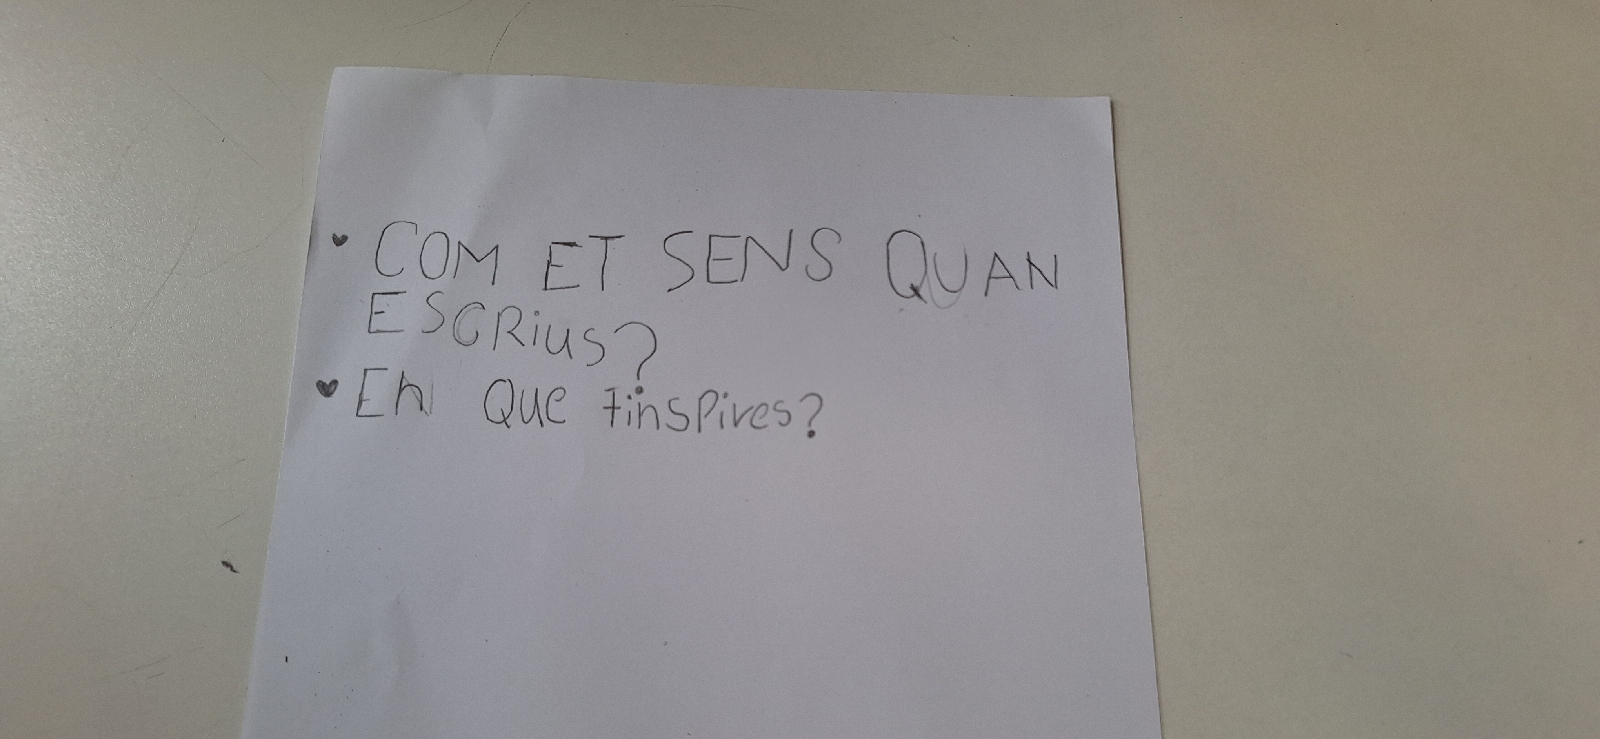 ♥ COM ET SENS QUAN
ESCRiUS?
♥ EN QUE tinsPires?